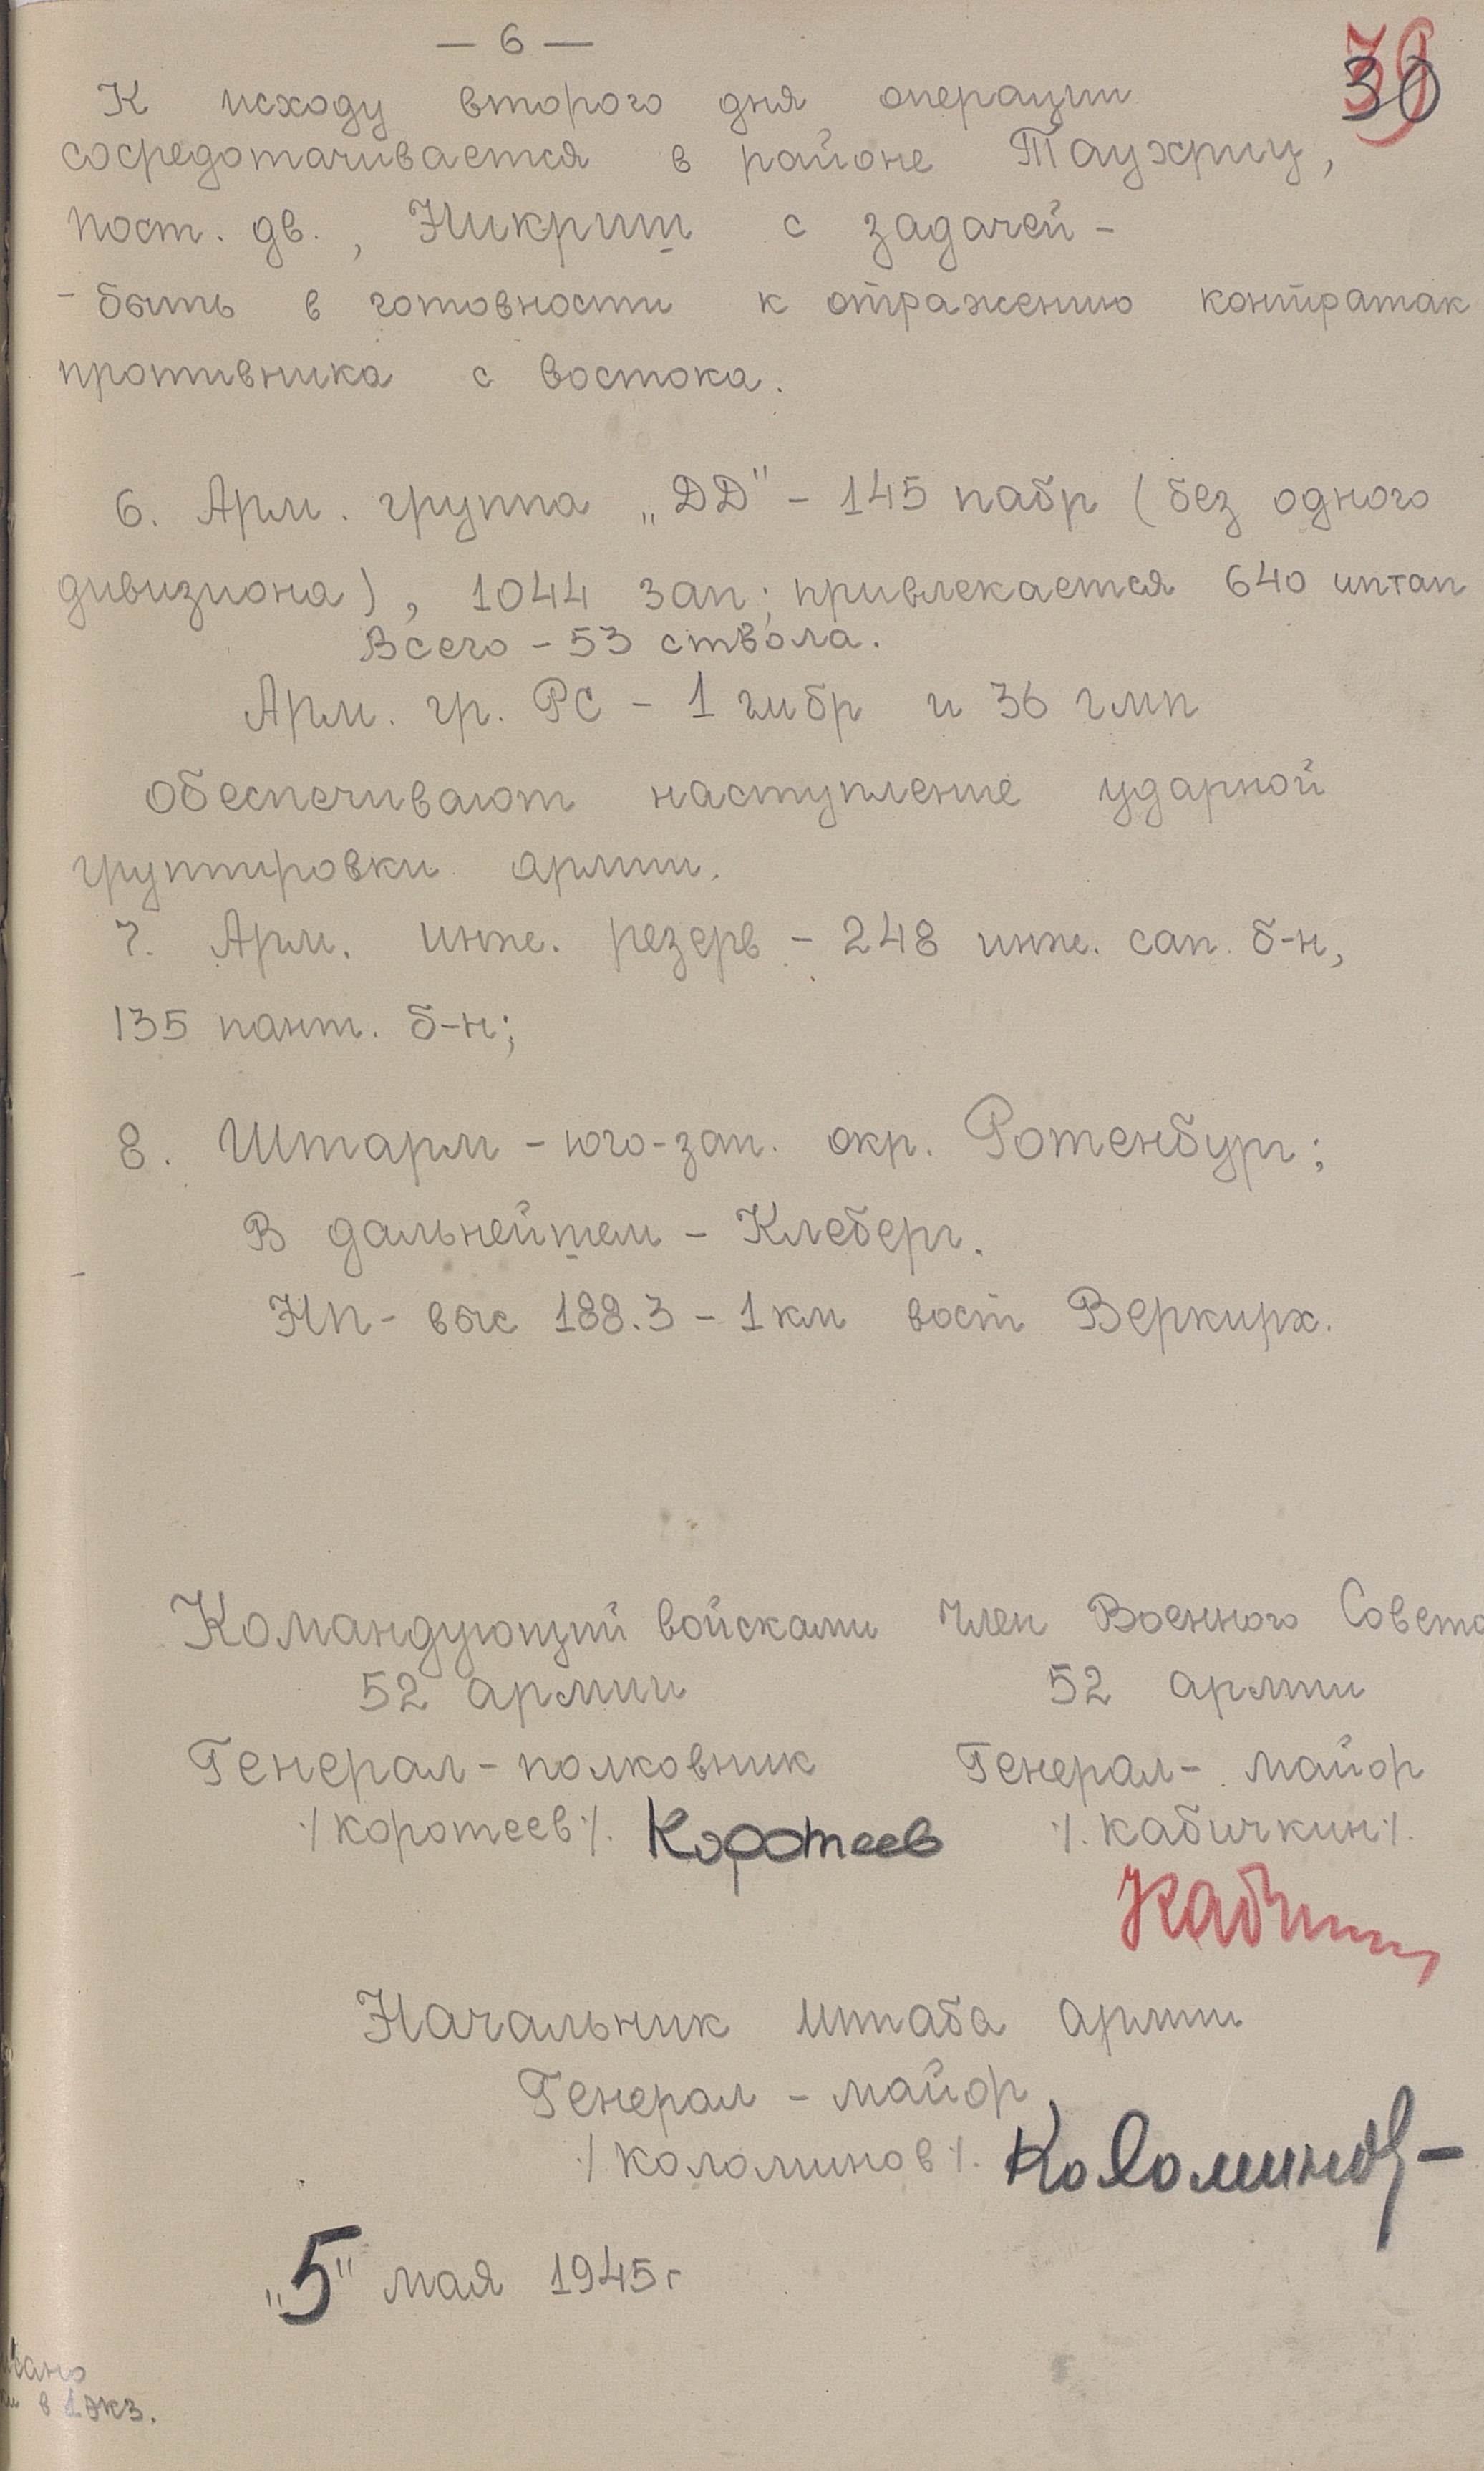 — 6 —
39
30
К исходу второго дня операции
сосредотачивается в районе Таухриц,
пост. дв., Никриш с задачей -
- быть в готовности к отражению контратак
противника с востока.
6. Арм. группа „ДД" - 145 пабр (без одного
дивизиона), 1044 зап; привлекается 640 иптап
Всего - 53 ствола.
Арм. гр. РС - 1 гмбр и 36 гмп
обеспечивают наступление ударной
группировки армии.
7. Арм. инж. резерв - 248 инж. сап. б-н,
135 понт. б-н;
8. Штарм - юго-зап. окр. Ротенбург;
В дальнейшем - Клеберг.
НП - выс 188.3 - 1 км вост Веркирх.
Командующий войсками
52 армии
Генерал-полковник
/Коротеев/. Коротеев
Член Военного Совета
52 армии
Генерал-майор
/.Кабичкин/.
Начальник штаба армии
Генерал-майор
/Коломинов/. Коломинов
„5" мая 1945г
в 1 экз.